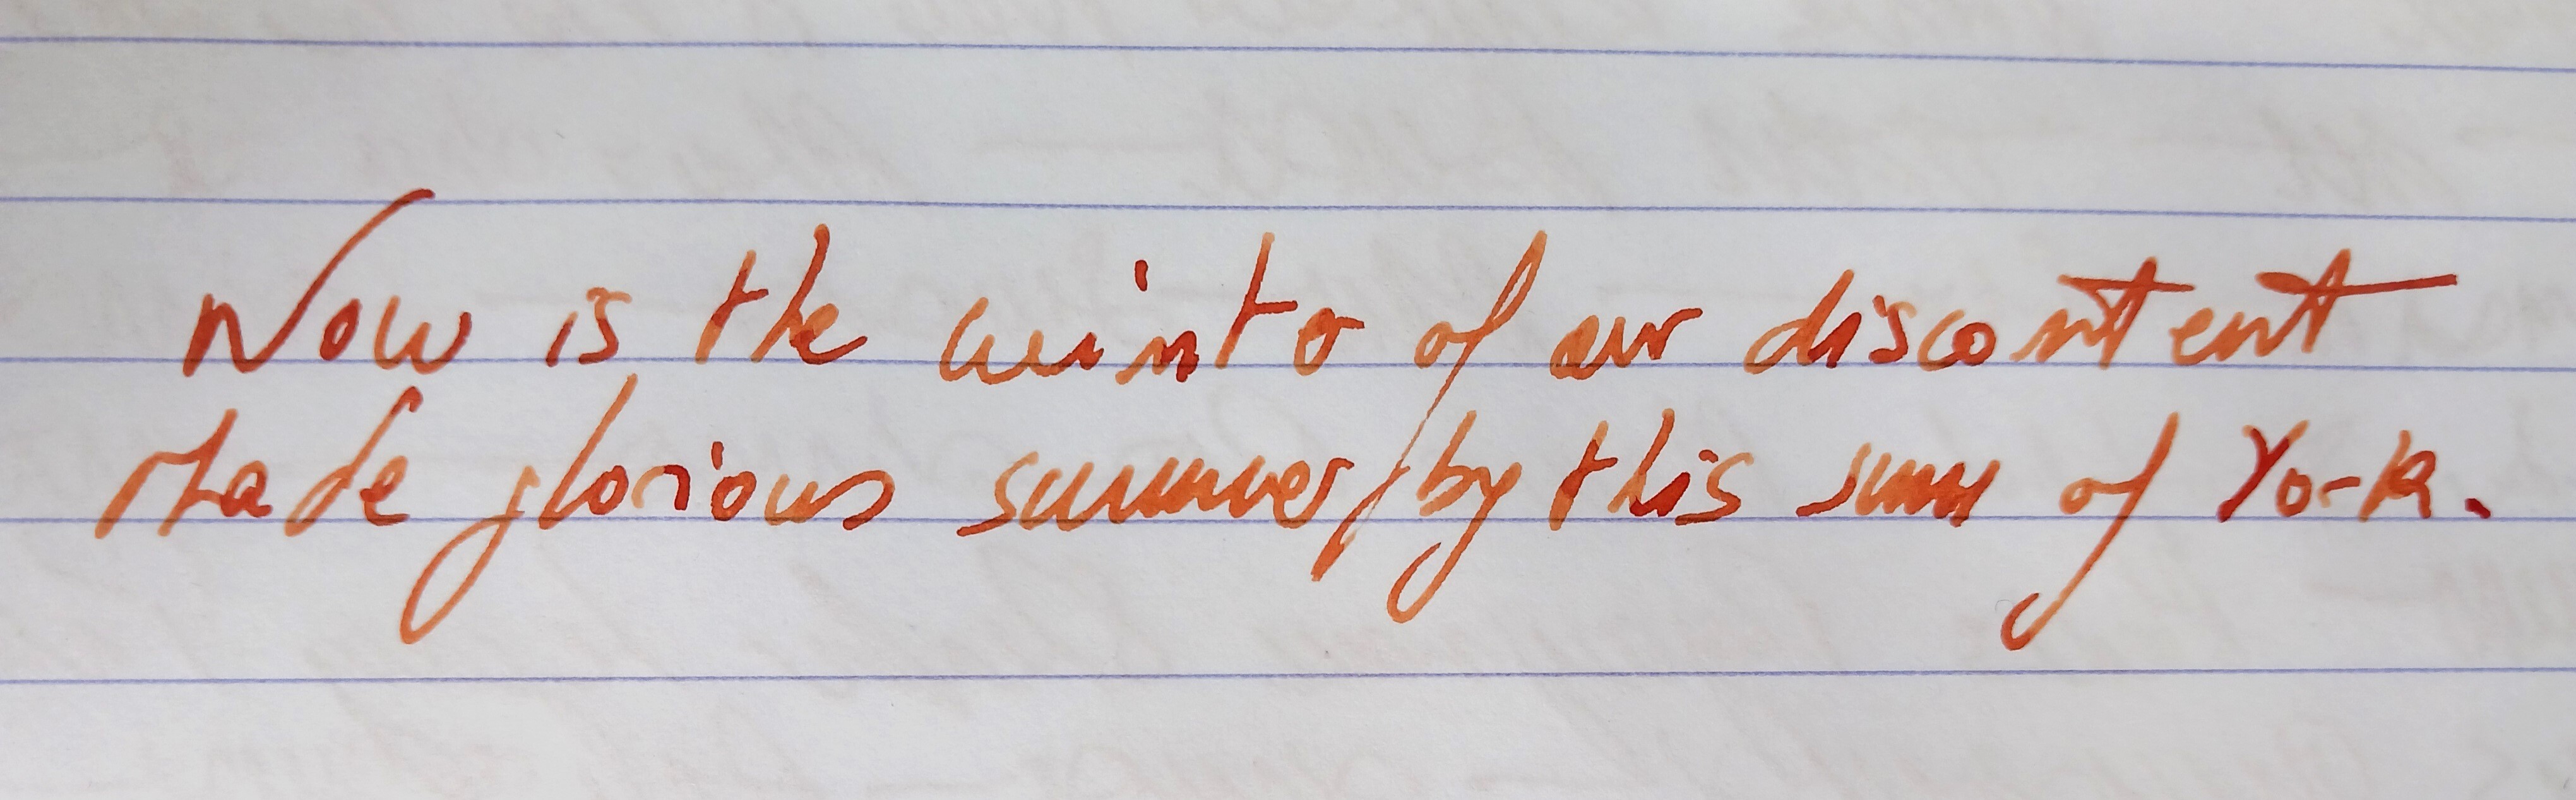 Now is the winter of our discontent
Made glorious summer by this sun of York.